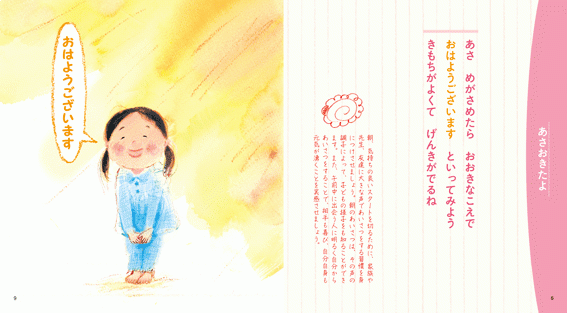 あさおきたよ
あさ めがさめたら おおきなこえで
おはようございます といってみよう
きもちがよくて げんきがでるね
朝、気持ちの良いスタートを切るために、家族や
先生、友達に大きな声であいさつをする習慣を身
につけさせましょう。朝のあいさつは、その声の
調子によって、子どもの様子をも知ることができ
ます。また、午前中に出会う人に明るく自分から
あいさつをすることで、相手も喜び、自分自身も
元気が湧くことを実感させましょう。
6
おはようございます
9